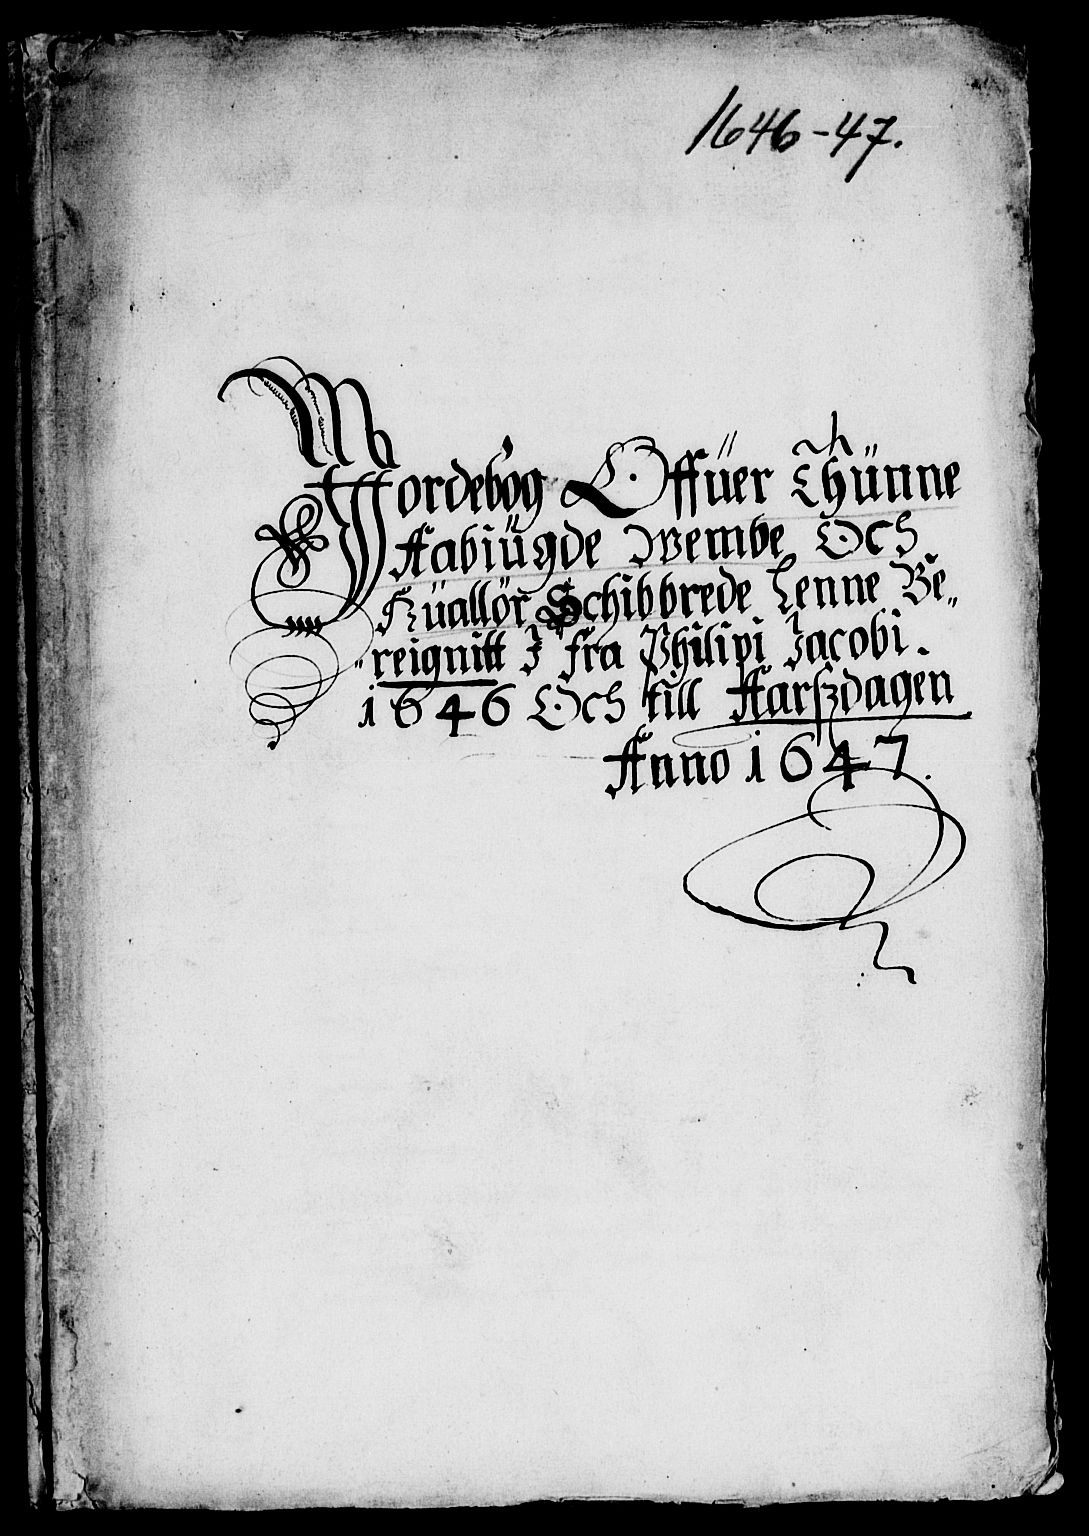 1646-47.
Jordebog Offüer Thünne
Aabiügde Wembe Och
Küallör Schibbrede Lenne Be„
„reignitt I fra Philipi Jacobi.
1646 Och till Aarszdagen
Anno 1647.